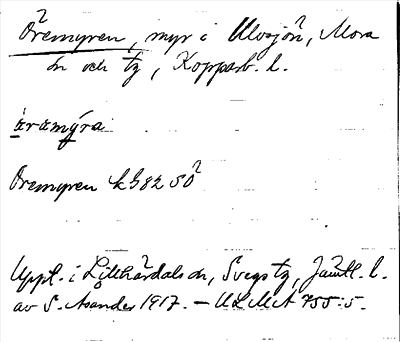 Öremyren, myr i Älvsjön, Mora
sn och tg, Kopparb. l.
äramýra
Öremyren kb 82 SÖ
Uppt. i Lillhärdals sn, Svegs tg, Jämtl. l.
av S. Asander 1917. – ULMA 755:5.